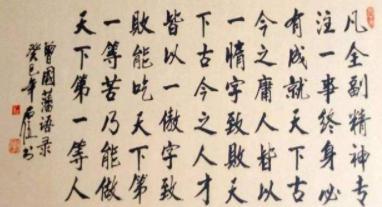 凡全副精神专
注一事终身必
有成就天下古
今之庸人皆以
一惰字致敗天
下古今之人才
皆以一傲字致
敗能吃天下第
一等苦乃能做
天下第一等人
曾國藩语录
癸巳年
书